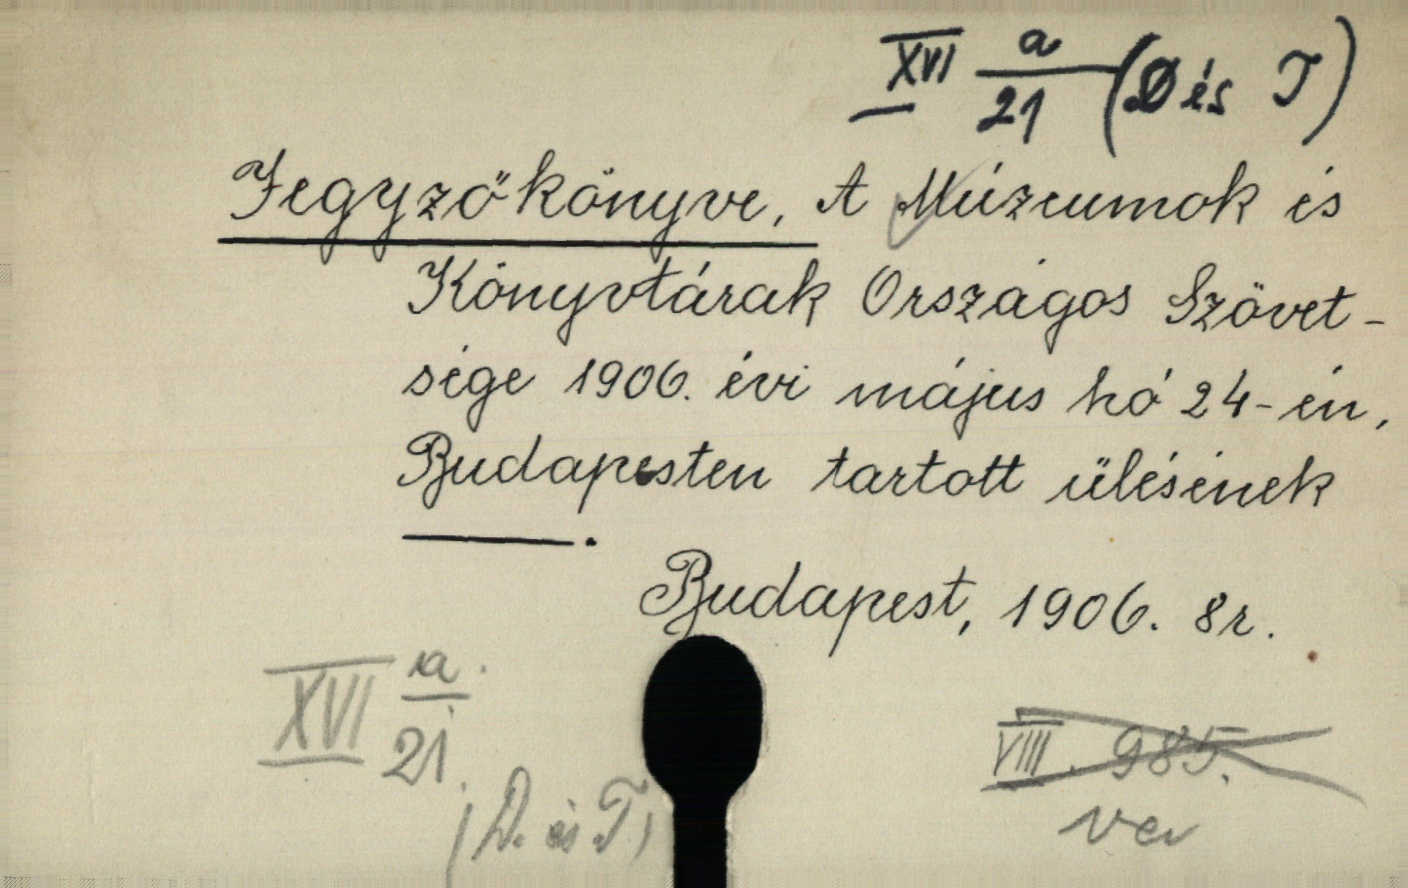 XVI a/21 (D és T)
Jegyzőkönyve, A Múzeumok és
Könyvtárak Országos Szövet-
sége 1906. évi május hó 24-én,
Budapesten tartott ülésének
———.
Budapest, 1906. 8r.
XVI a./21.
(D. és T)
VIII. 985.